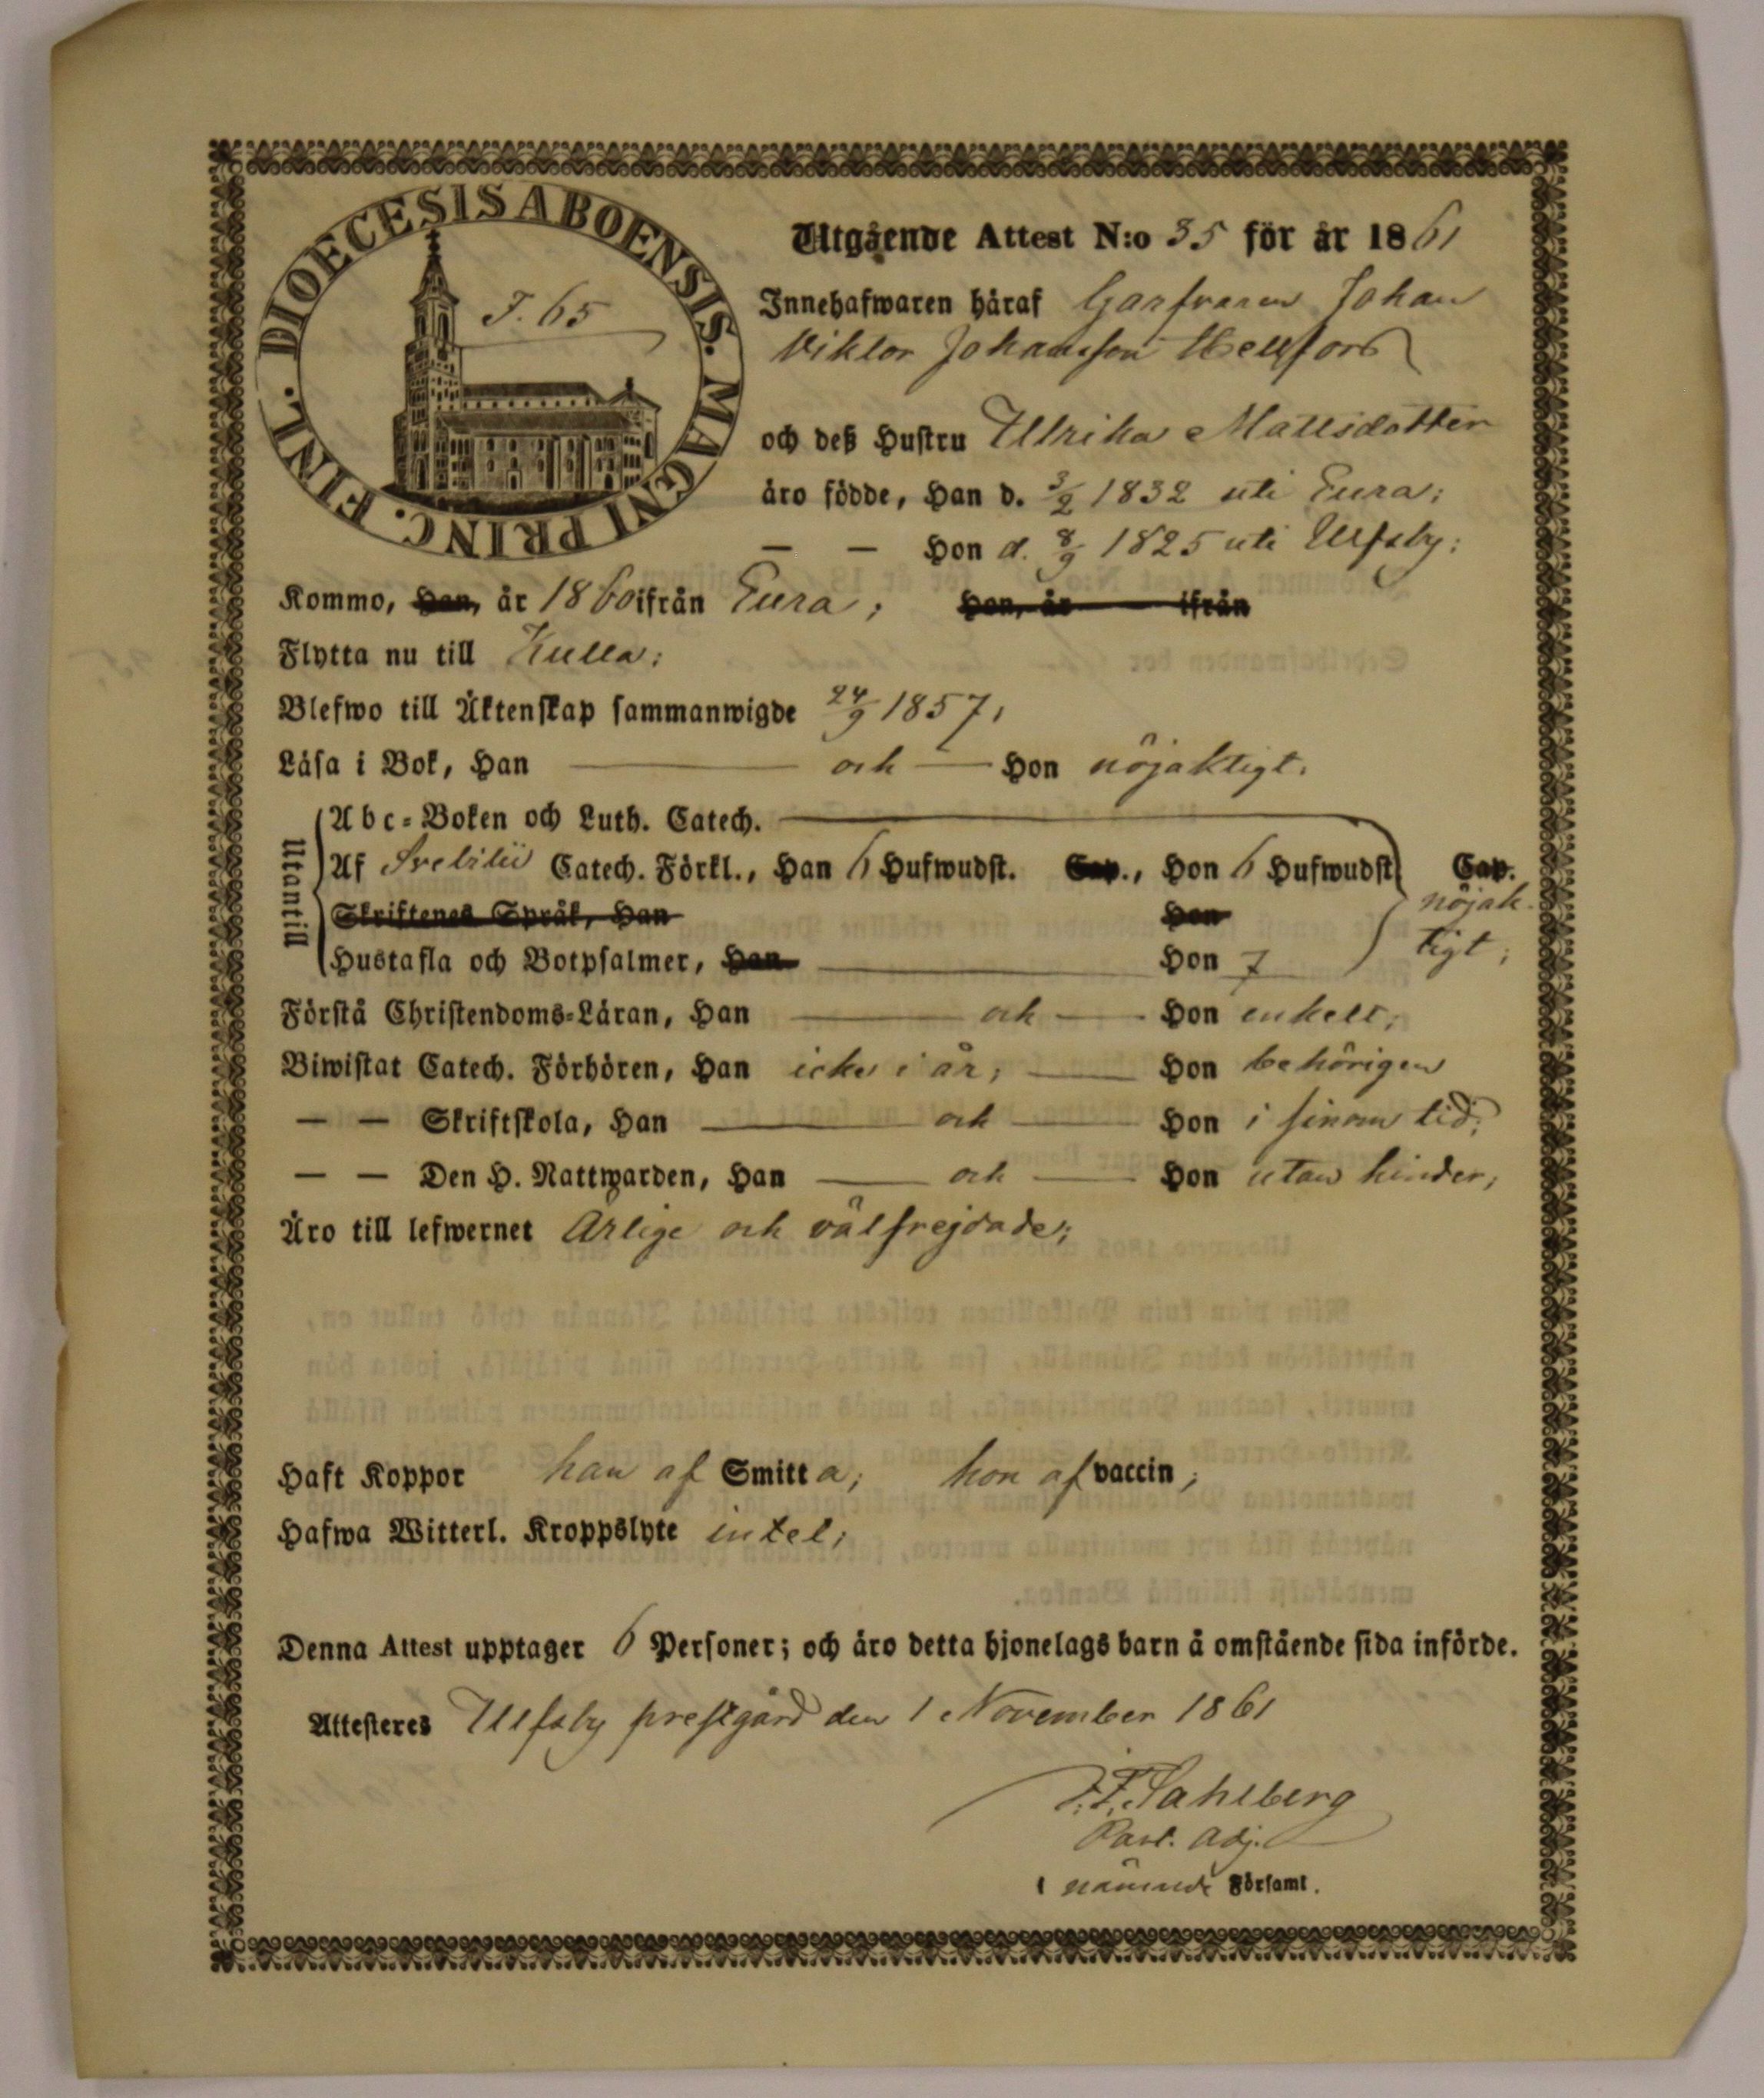 DIOECESIS ABOENSIS. MAGNI PRINC. FINL.
F. 65
Utgående Attest N:o 35 för år 1861
Innehafwaren häraf Garfvaren Johan
Viktor Johansson Hellfors
och deß Hustru Ulrika Mattsdotter
äro födde, Han d. 3/2 1832 uti Eura;
— — Hon d. 8/9 1825 uti Ulfsby;
Kommo, Han, år 1860 ifrån Eura; Hon, år ifrån
Flytta nu till Kulla;
Blefwo till Äktenskap sammanwigde 24/9 1857;
Läsa i Bok, Han — och — Hon nöjaktigt.
Utantill
Abc-Boken och Luth. Catech.
Af Svebilii Catech. Förkl., Han 6 Hufwudst. Cap., Hon 6 Hufwudst. Cap.
nöjak-
Skriftenes Språk, Han Hon
tigt;
Hustafla och Botpsalmer, Han — Hon 7
Förstå Christendoms-Läran, Han — och — Hon enkelt;
Biwistat Catech. Förhören, Han icke i år; — Hon behörigen
— — Skriftskola, Han — och — Hon i sinom tid;
— — Den H. Nattwarden, Han — och — Hon utan hinder;
Äro till lefwernet Ärlige och välfrejdade;
Haft Koppor han af Smitta; hon af vaccin;
Hafwa Witterl. Kroppslyte intet;
Denna Attest upptager 6 Personer; och äro detta hjonelags barn å omstående sida införde.
Attesteres Ulfsby prestgård den 1 November 1861
J. F. Sahlberg
Past. Adj.
i nämnde Församl.